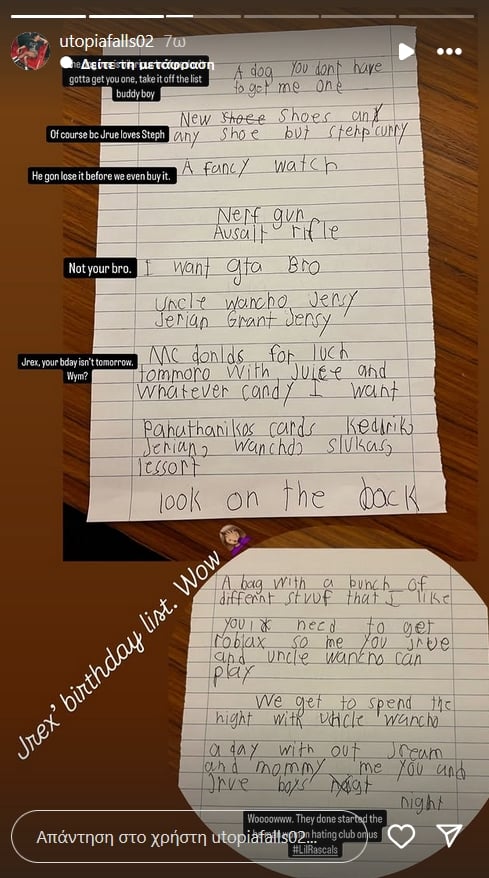 utopiafalls02 7ω
Δείτε τη μετάφραση
gotta get you one, take it off the list
buddy boy
A dog you dont have
to get me one
New shoee shoes and
any shoe but steph curry
Of course bc Jrue loves Steph
A fancy watch
He gon lose it before we even buy it.
Nerf gun
Ausalt rifle
Not your bro.
I want gta Bro
Uncle wancho Jersy
Jerian Grant Jersy
Jrex, your bday isn't tomorrow.
Wym?
Mc donlds for luch
tommoro with Juice and
whatever candy I want
Panathanikos cards Kedrik,
Jerian, Wancho, slukas,
lessort
look on the back
Jrex' birthday list. Wow
A bag with a bunch of
differnt stuuf that I like
you need to get
roblax so me you Jrue
and uncle wancho can
play
We get to spend the
night with uncle wancho
a day with out Jream
and mommy me you and
Jrue boys
night
Woooowww. They done started the
hating club on us
#LilRascals
Απάντηση στο χρήστη utopiafalls02...